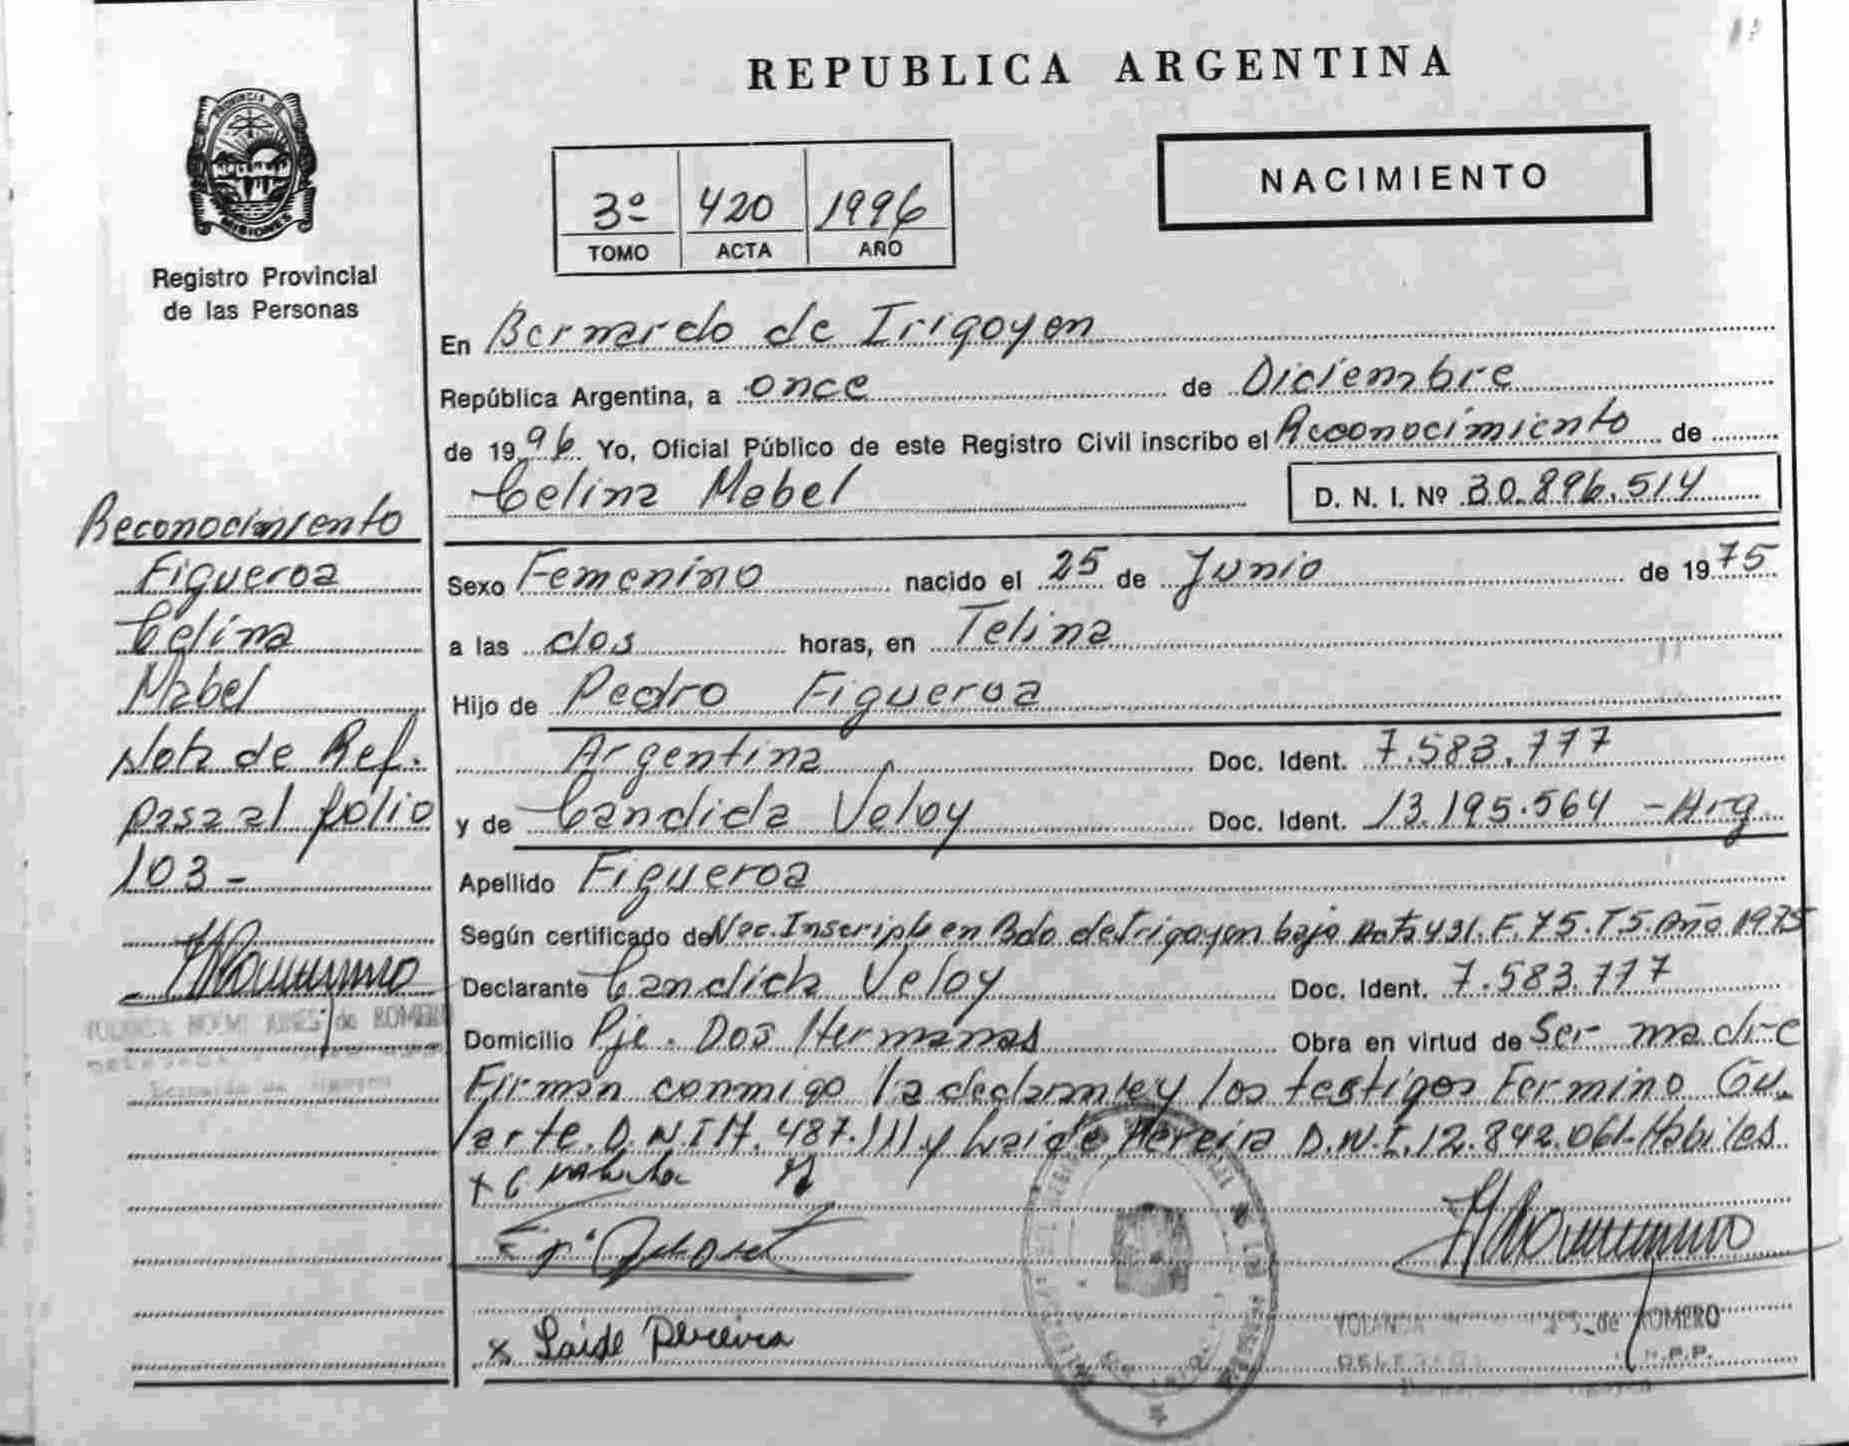 REPUBLICA ARGENTINA
PROVINCIA DE
MISIONES
Registro Provincial
de las Personas
NACIMIENTO
3º 420 1996
TOMO ACTA AÑO
En Bernardo de Irigoyen
República Argentina, a once de Diciembre
de 1996 Yo, Oficial Público de este Registro Civil inscribo el Reconocimiento de
Celina Mabel D. N. I. Nº 30.896.514
Sexo Femenino nacido el 25 de Junio de 1975
a las dos horas, en Telina
Hijo de Pedro Figueroa
Argentina Doc. Ident. 7.583.777
y de Candida Veloy Doc. Ident. 13.195.564 - Arg.
Apellido Figueroa
Según certificado de Nac. Inscripto en Bdo de Irigoyen bajo Acta 431. F. 75. T5. Año 1975
Declarante Candida Veloy Doc. Ident. 7.583.777
Domicilio Pje. Dos Hermanas Obra en virtud de Ser madre
Firman conmigo la declarante y los testigos Fermino Gu
larte. D.N.I 17.487.111 y Laide Pereira D.N.I. 12.842.061-Habiles
x Laide Pereira
YOLANDA de ROMERO
Reconocimiento
Figueroa
Celina
Mabel
Nota de Ref.
pasa al folio
103-
YOLANDA NOEMI AIRES de ROMERO